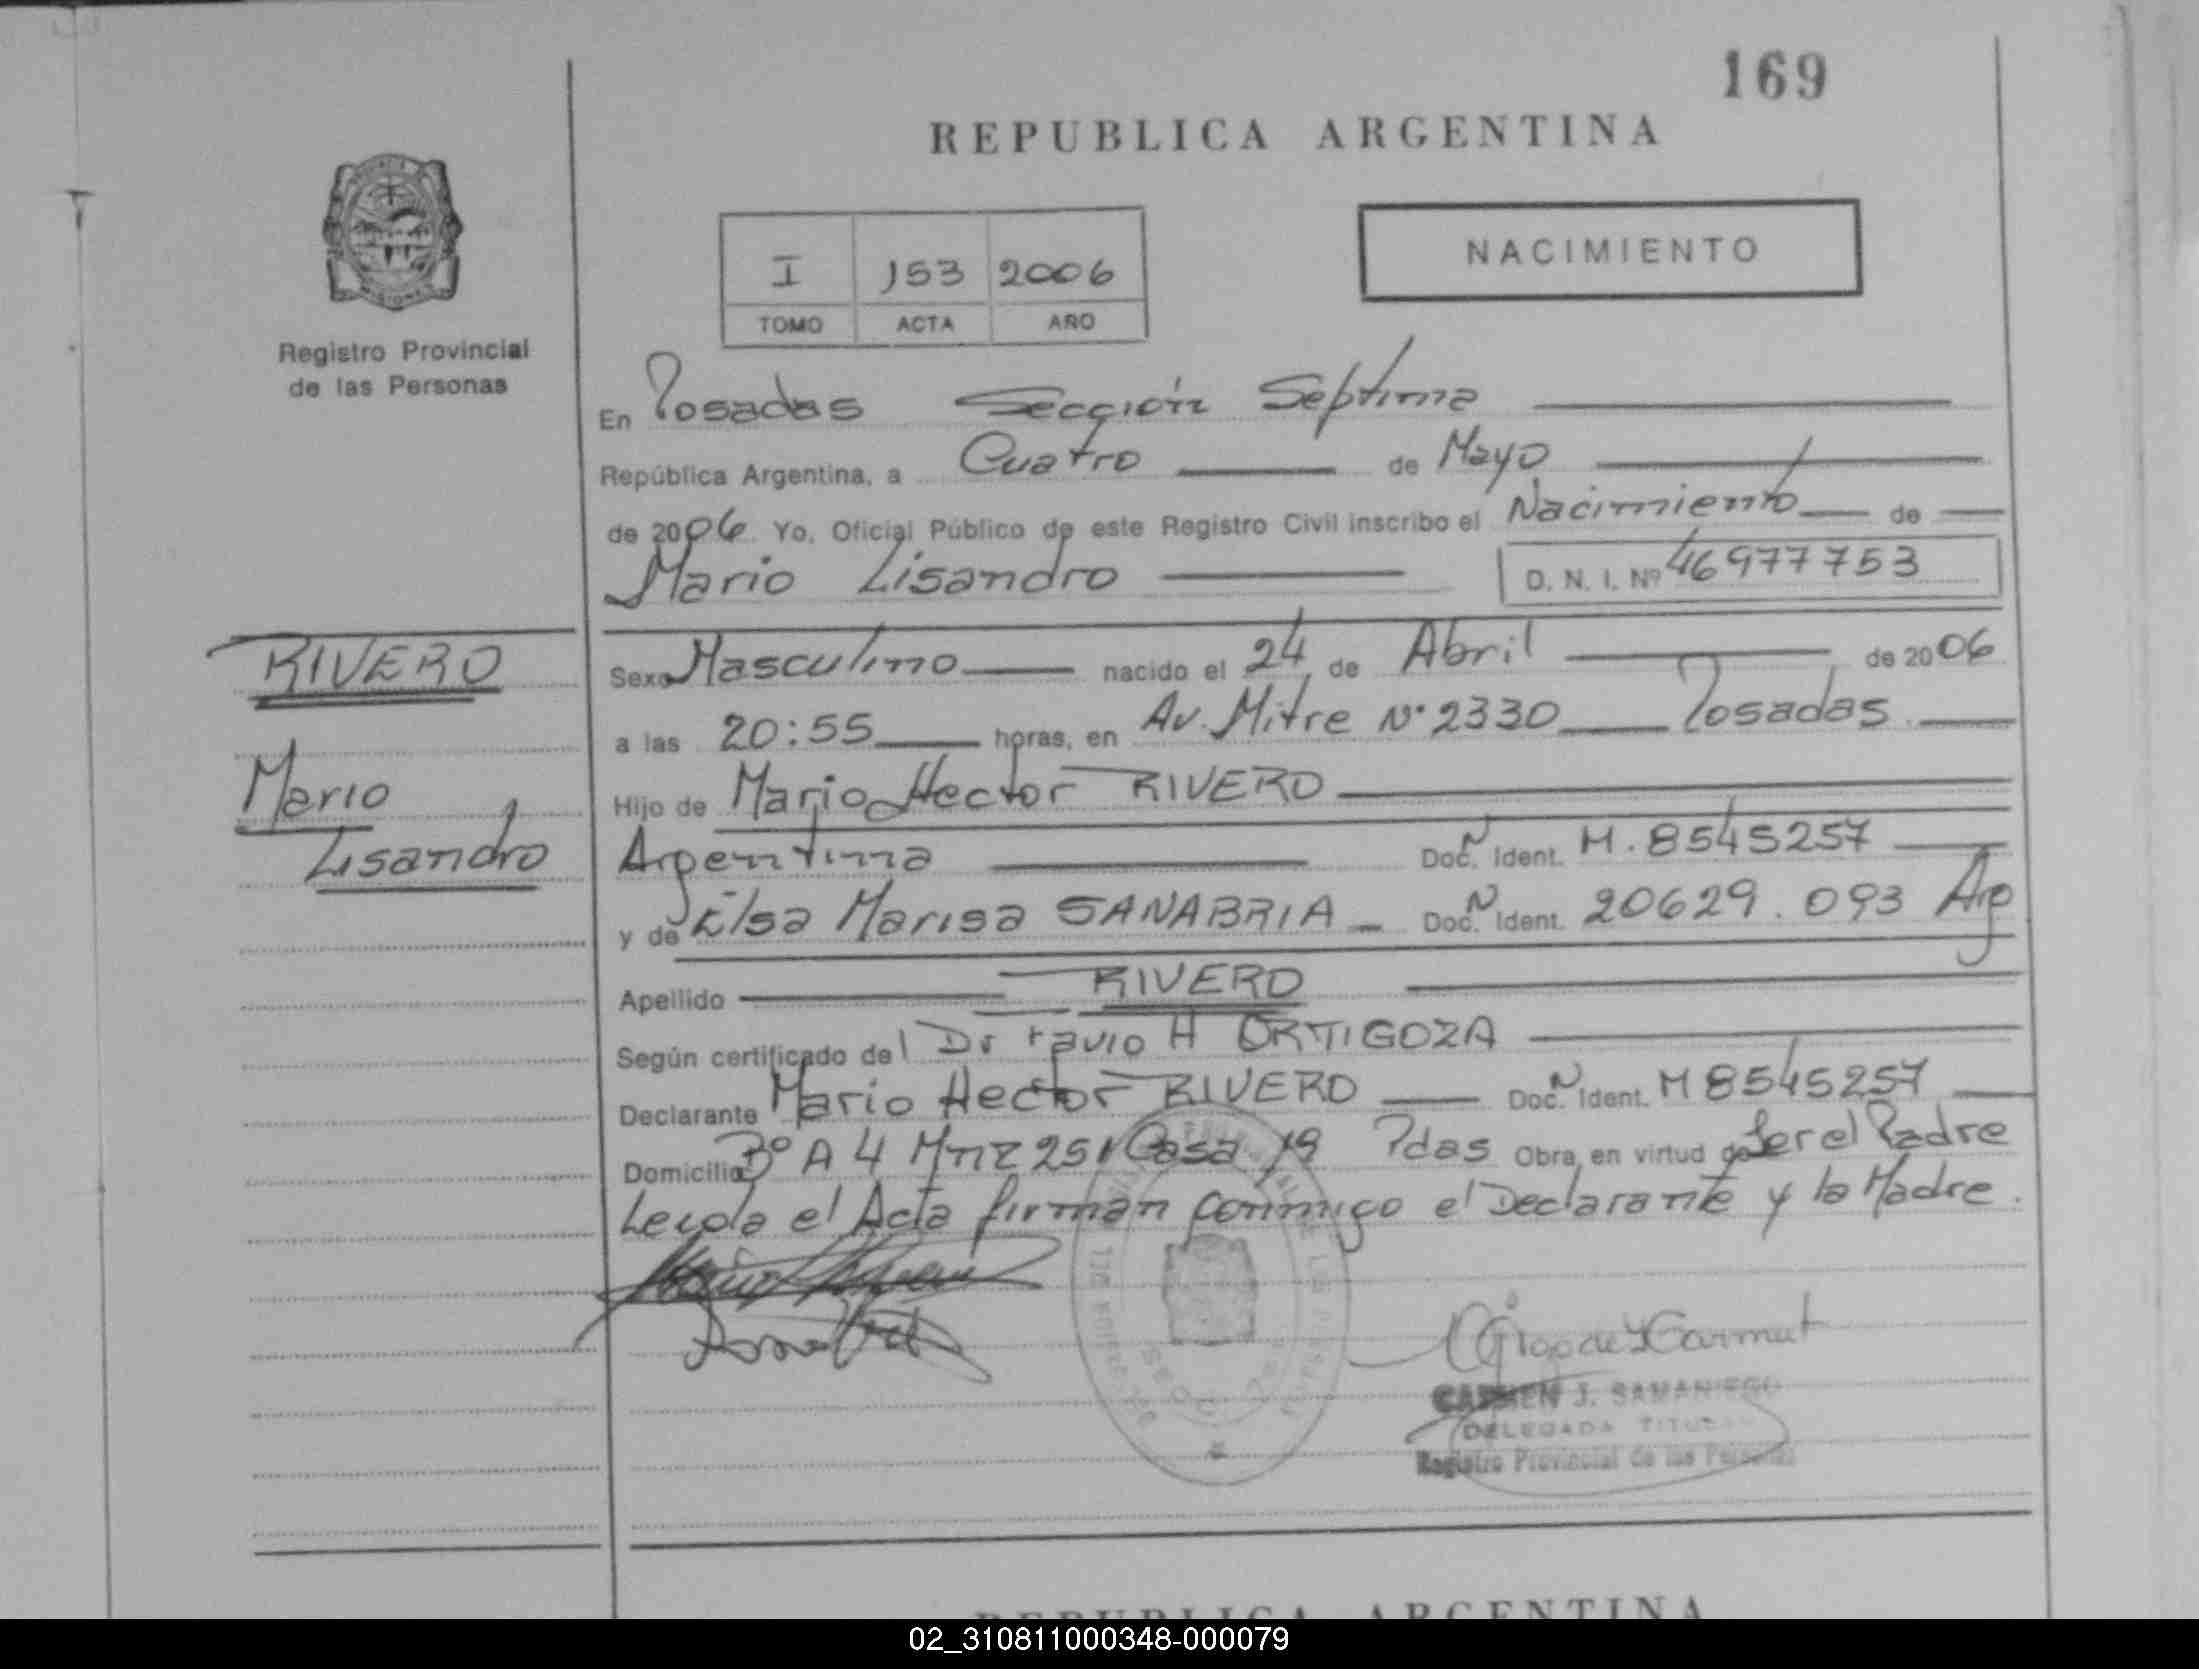 169
REPUBLICA ARGENTINA
NACIMIENTO
I 153 2006
TOMO ACTA AÑO
Registro Provincial
de las Personas
En Posadas Sección Septima
República Argentina, a Cuatro de Mayo
de 2006. Yo, Oficial Público de este Registro Civil inscribo el Nacimiento de
Mario Lisandro D. N. I. Nº 46977753
RIVERO
Mario
Lisandro
Sexo Masculino nacido el 24 de Abril de 2006
a las 20:55 horas, en Av. Mitre Nº 2330 Posadas
Hijo de Mario Hector RIVERO
Argentina Doc. N Ident. M. 8545257
y de Elsa Marisa SANABRIA Doc. N Ident. 20629.093 Arg
Apellido RIVERO
Según certificado del Dr H ORTIGOZA
Declarante Mario Hector RIVERO Doc. N Ident. M 8545257
Domicilio Bº A 4 Mnz 251 Casa 19 Pdas Obra en virtud de Ser el Padre
Leida el Acta firman conmigo el Declarante y la Madre.
CARMEN J. SAMANIEGO
DELEGADA TITULAR
Registro Provincial de las Personas
REPUBLICA ARGENTINA
02_310811000348-000079